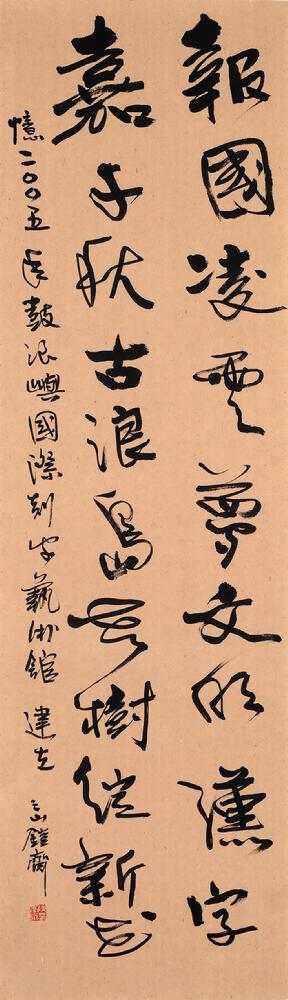 報國凌雲夢文明漢字
嘉千秋古浪島老樹綻新花
憶二〇〇五年鼓浪嶼國際刻字藝術館建立